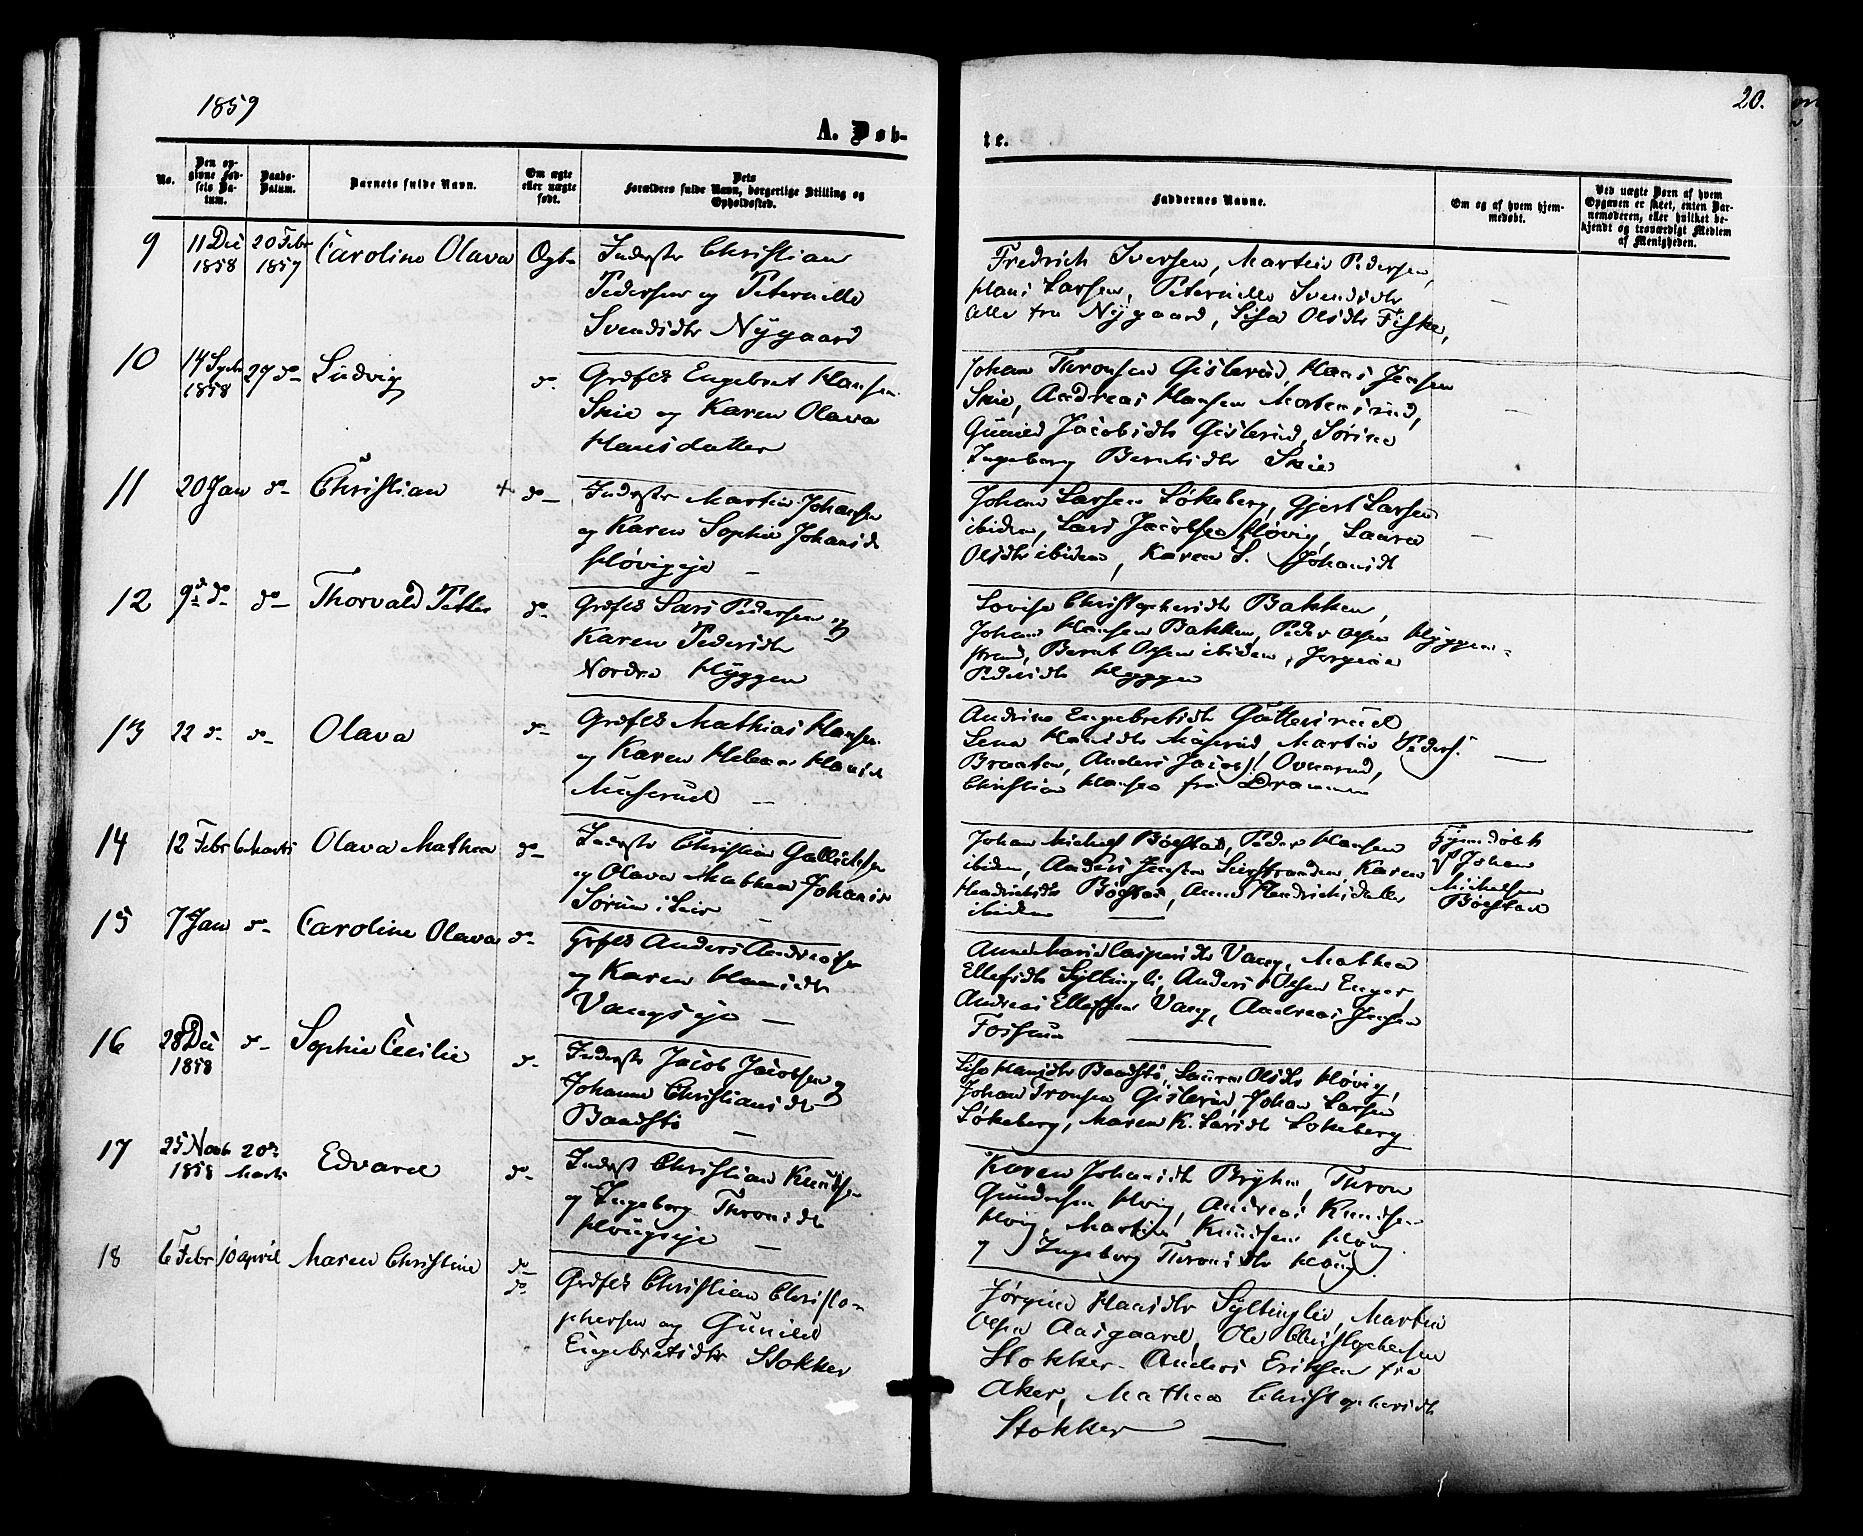 1859
20.
A. Døb-
te.
No.
Den op-
givne Fød-
sels Da-
tum.
Daabs-
Datum.
Barnets fulde Navn.
Om ægte
eller uægte
født.
Dets
Forældres fulde Navn, borgerlige Stilling og
Opholdssted.
Faddernes Navne.
Om og af hvem hjem-
medøbt.
Ved uægte Børn af hvem
Opgaven er skeet, enten Bar-
nemoderen, eller hvilket be-
kjendt og troværdigt Medlem
af Menigheden.
9
11 Dec
1858
20 Febr
1859
Caroline Olava
Ægte
Inderste Christian
Pedersen og Peternelle
Svendsdtr Nygaard
Fredrich Iversen, Martin Pedersen,
Hans Larsen, Peternelle Svendsdtr
alle fra Nygaard, Lisa Olsdtr Fiske,
10
14
1858
27 do
Ludvig
do
Engebret Hansen
Skie og Karen Olava
Hansdatter
Johan Thronsen Gislerud, Hans Jensen
Skie, Andreas Hansen Mortensrud,
Gunild Jacobsdtr Gislerud, Sørine
Ingeborg Berntsdtr Skie
11
20 Jan
do
Christian
+
do
Inderste Martin Johansen
og Karen Sophie Johansd
Høvigeje
Johan Larsen Løkeberg, Gjert Larsen
ibidem, Lars Jacobsen Høvig, Laura
Olsdtr ibidem, Karen S. Johansdt
12
9 do
do
Thorvald Petter
do
Lars Pedersen og
Karen Pedersdtr
Nordre Hyggen
Lovise Christophersdtr Bakken,
Johan Hansen Bakken, Peder Olsen Hyggen-
strand, Bernt Olsen ibidem, Jørgine
Pedersdtr Hyggen
13
22 do
do
Olava
do
Mathias Hansen
og Karen Helene Hansd
Muserud
Andrine Engebretsdtr Guttersrud
Lena Hansdtr Muserud, Martin Peders.
Braaten, Anders Jacobs. Ovnerud,
Christian Hansen fra Drammen
14
12 Febr
6 Marts
Olava Mathea
do
Inderste Christian
og Olava Mathea Johansd
Sørum i Lier
Johan Michels Bøelstad, Peder Hansen
ibidem, Anders Jensen Karen
Hendrichsdtr Bøelstad, Anne Hendrichsdatter
ibidem
Hjemdøbt
af Johan
Michelsen
Bøelstad
15
7 Jan
do
Caroline Olava
do
Anders Andreasen
og Karen Hansdtr
Vangseje
Anne Marie Caspersdtr Vang, Mathea
Ellefsdtr Syltingli, Anders Olsen Enger,
Andreas Ellefsen Vang, Andreas Jensen
Fossum
16
28 Dec
1858
do
Sophie Cecilie
do
Inderste Jacob Jacobsen og
Johanne Christiansdt
Baadstø
Lise Hansdtr Baadstø, Laura Olsdtr Høvig,
Johan Tronsen Gislerud, Johan Larsen
Løkeberg, Maren K. Larsdtr Løkeberg
17
25 Novb
1858
20de
Marts
Edvard
do
Inderst Christian Knudsen
og Ingeborg Thronsdt
Høugseje
Karen Johansdt Bryhn, Thron
Gundersen Høug, Andreas Knudsen
Høug, Martin Knudsen Høug
og Ingeborg Thronsdtr Høug.
18
6 Febr
10 April
Maren Christine
do
do
Christian Christo-
phersen og Gunild
Engebretsdtr Stokker
Jørgine Hansdtr Syltinglie, Martin
Olsen Aasgaard, Ole Christophersen
Stokker. Anders Eriksen fra
Aker, Mathea Christophersdtr
Stokker